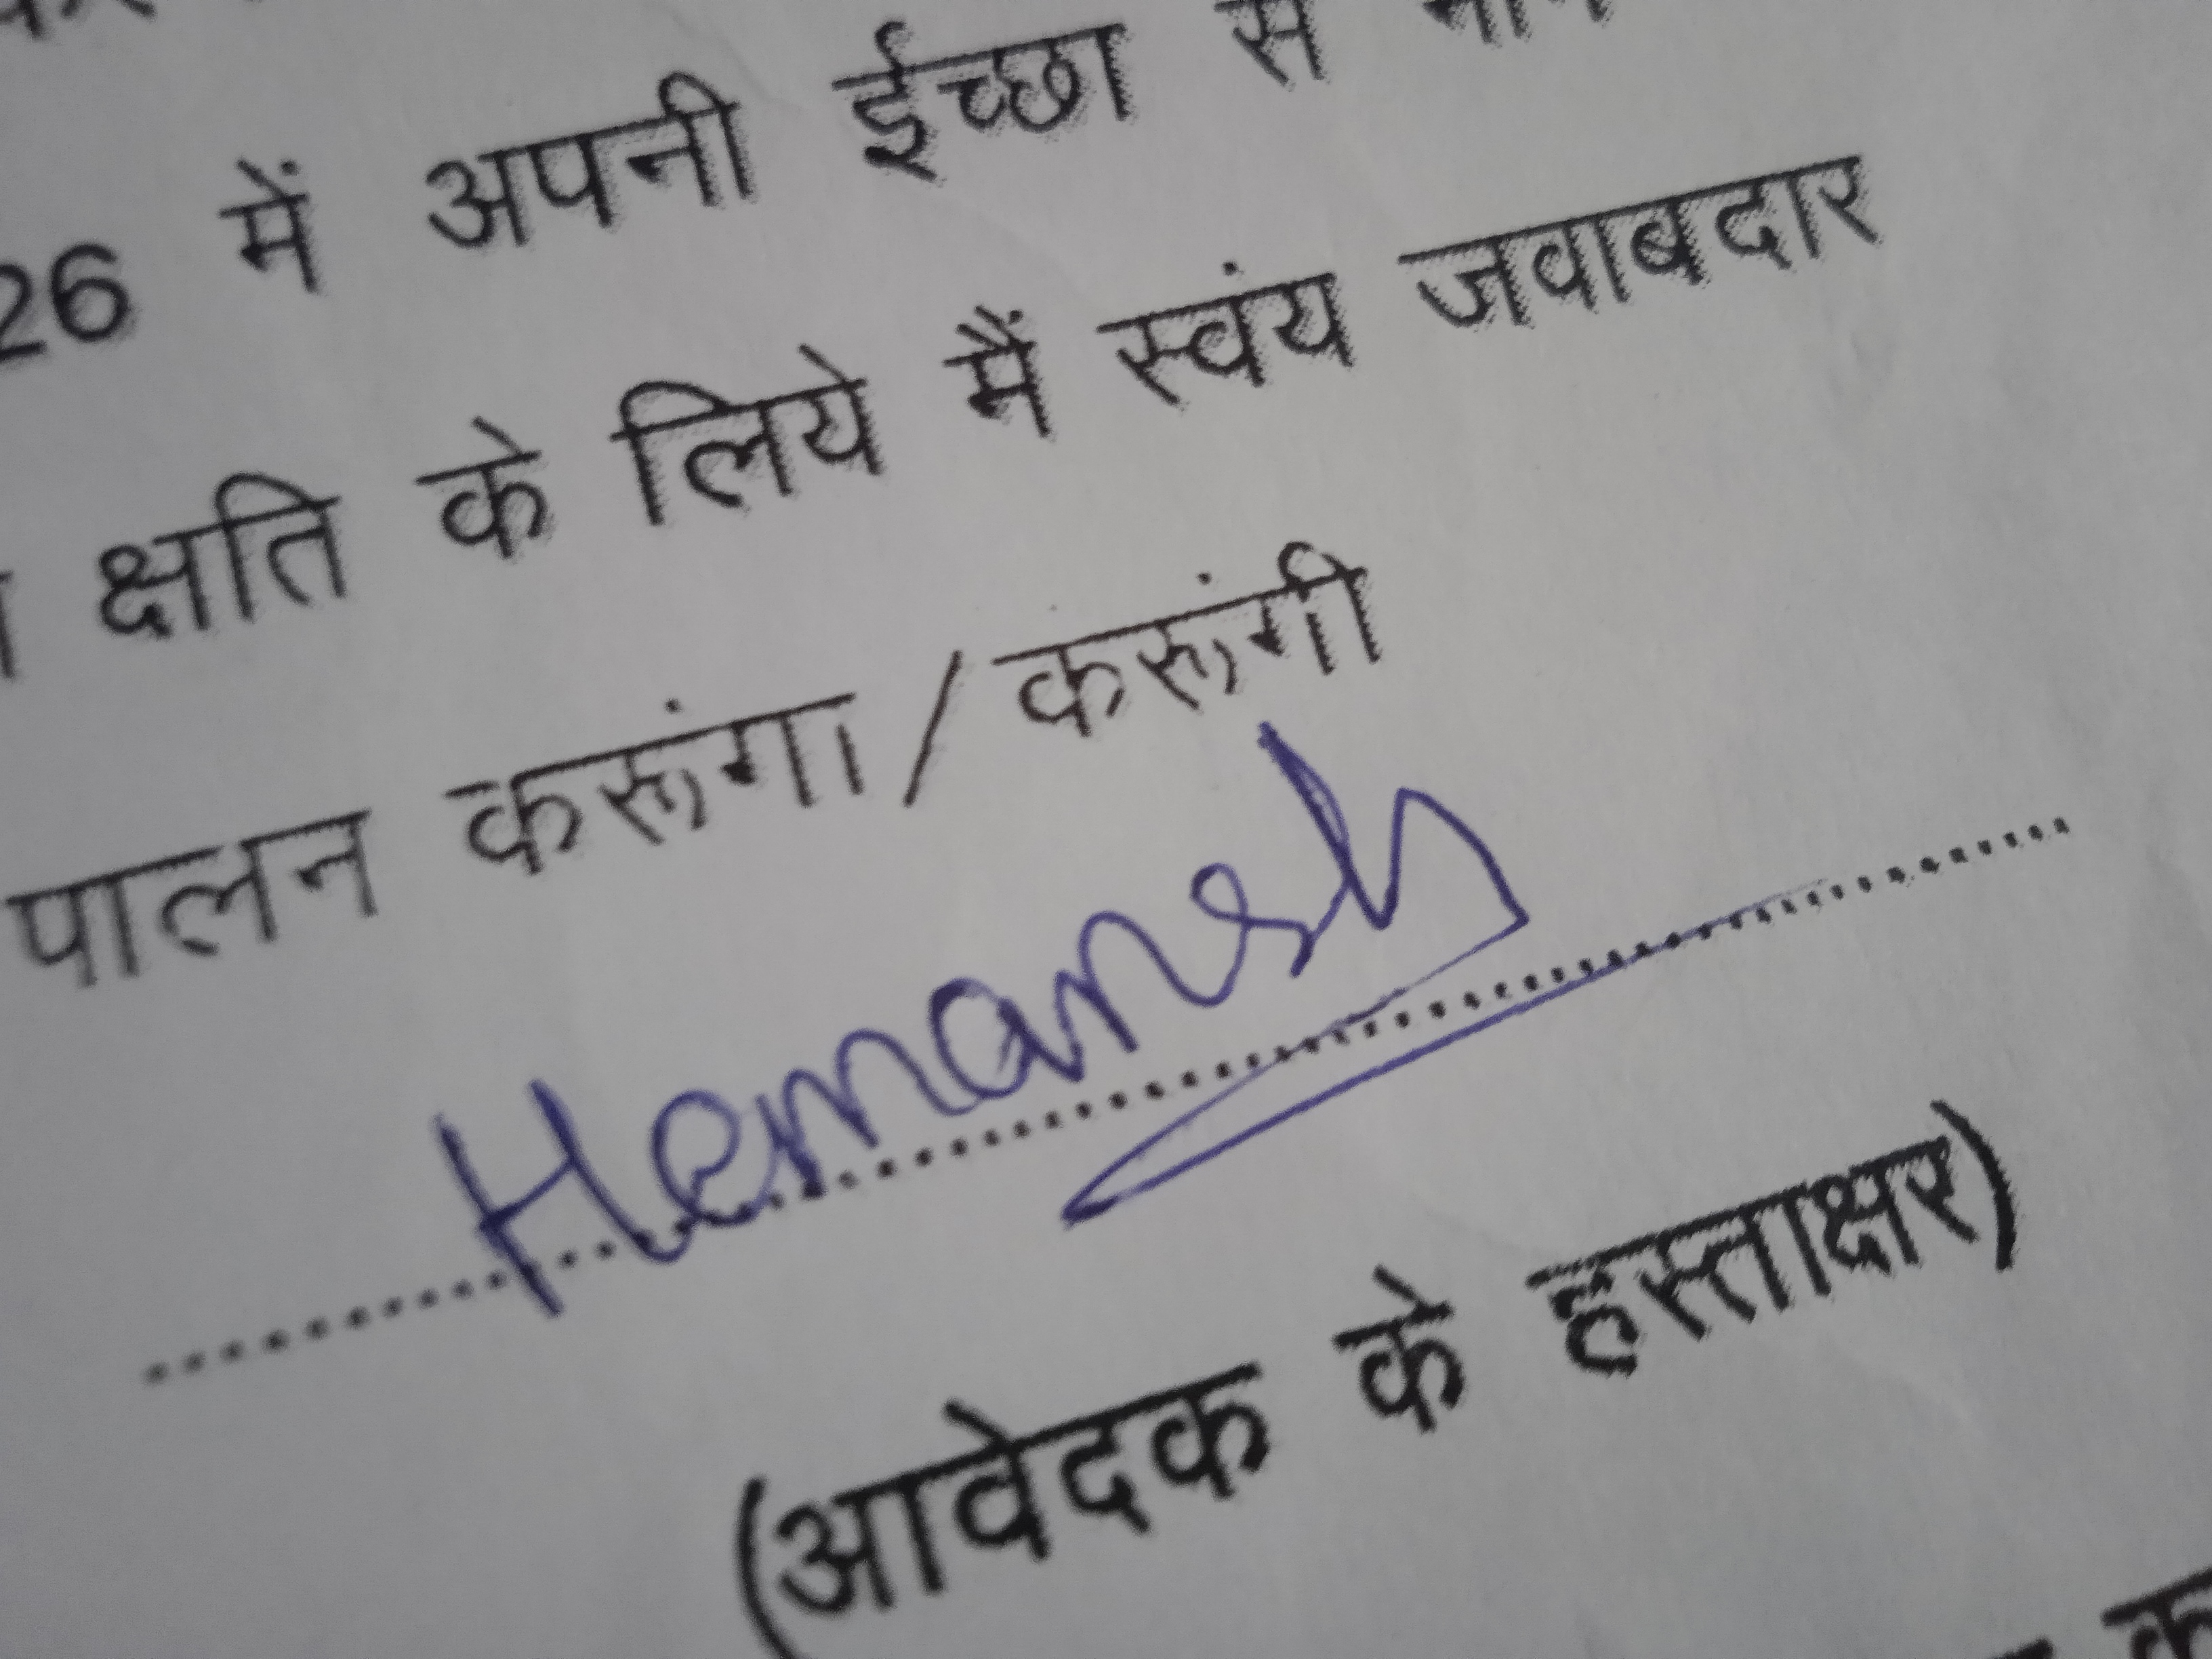 26 में अपनी ईच्छा से
क्षति के लिये मैं स्वंय जवाबदार
पालन करूंगा/करूंगी
Hemansh
(आवेदक के हस्ताक्षर)